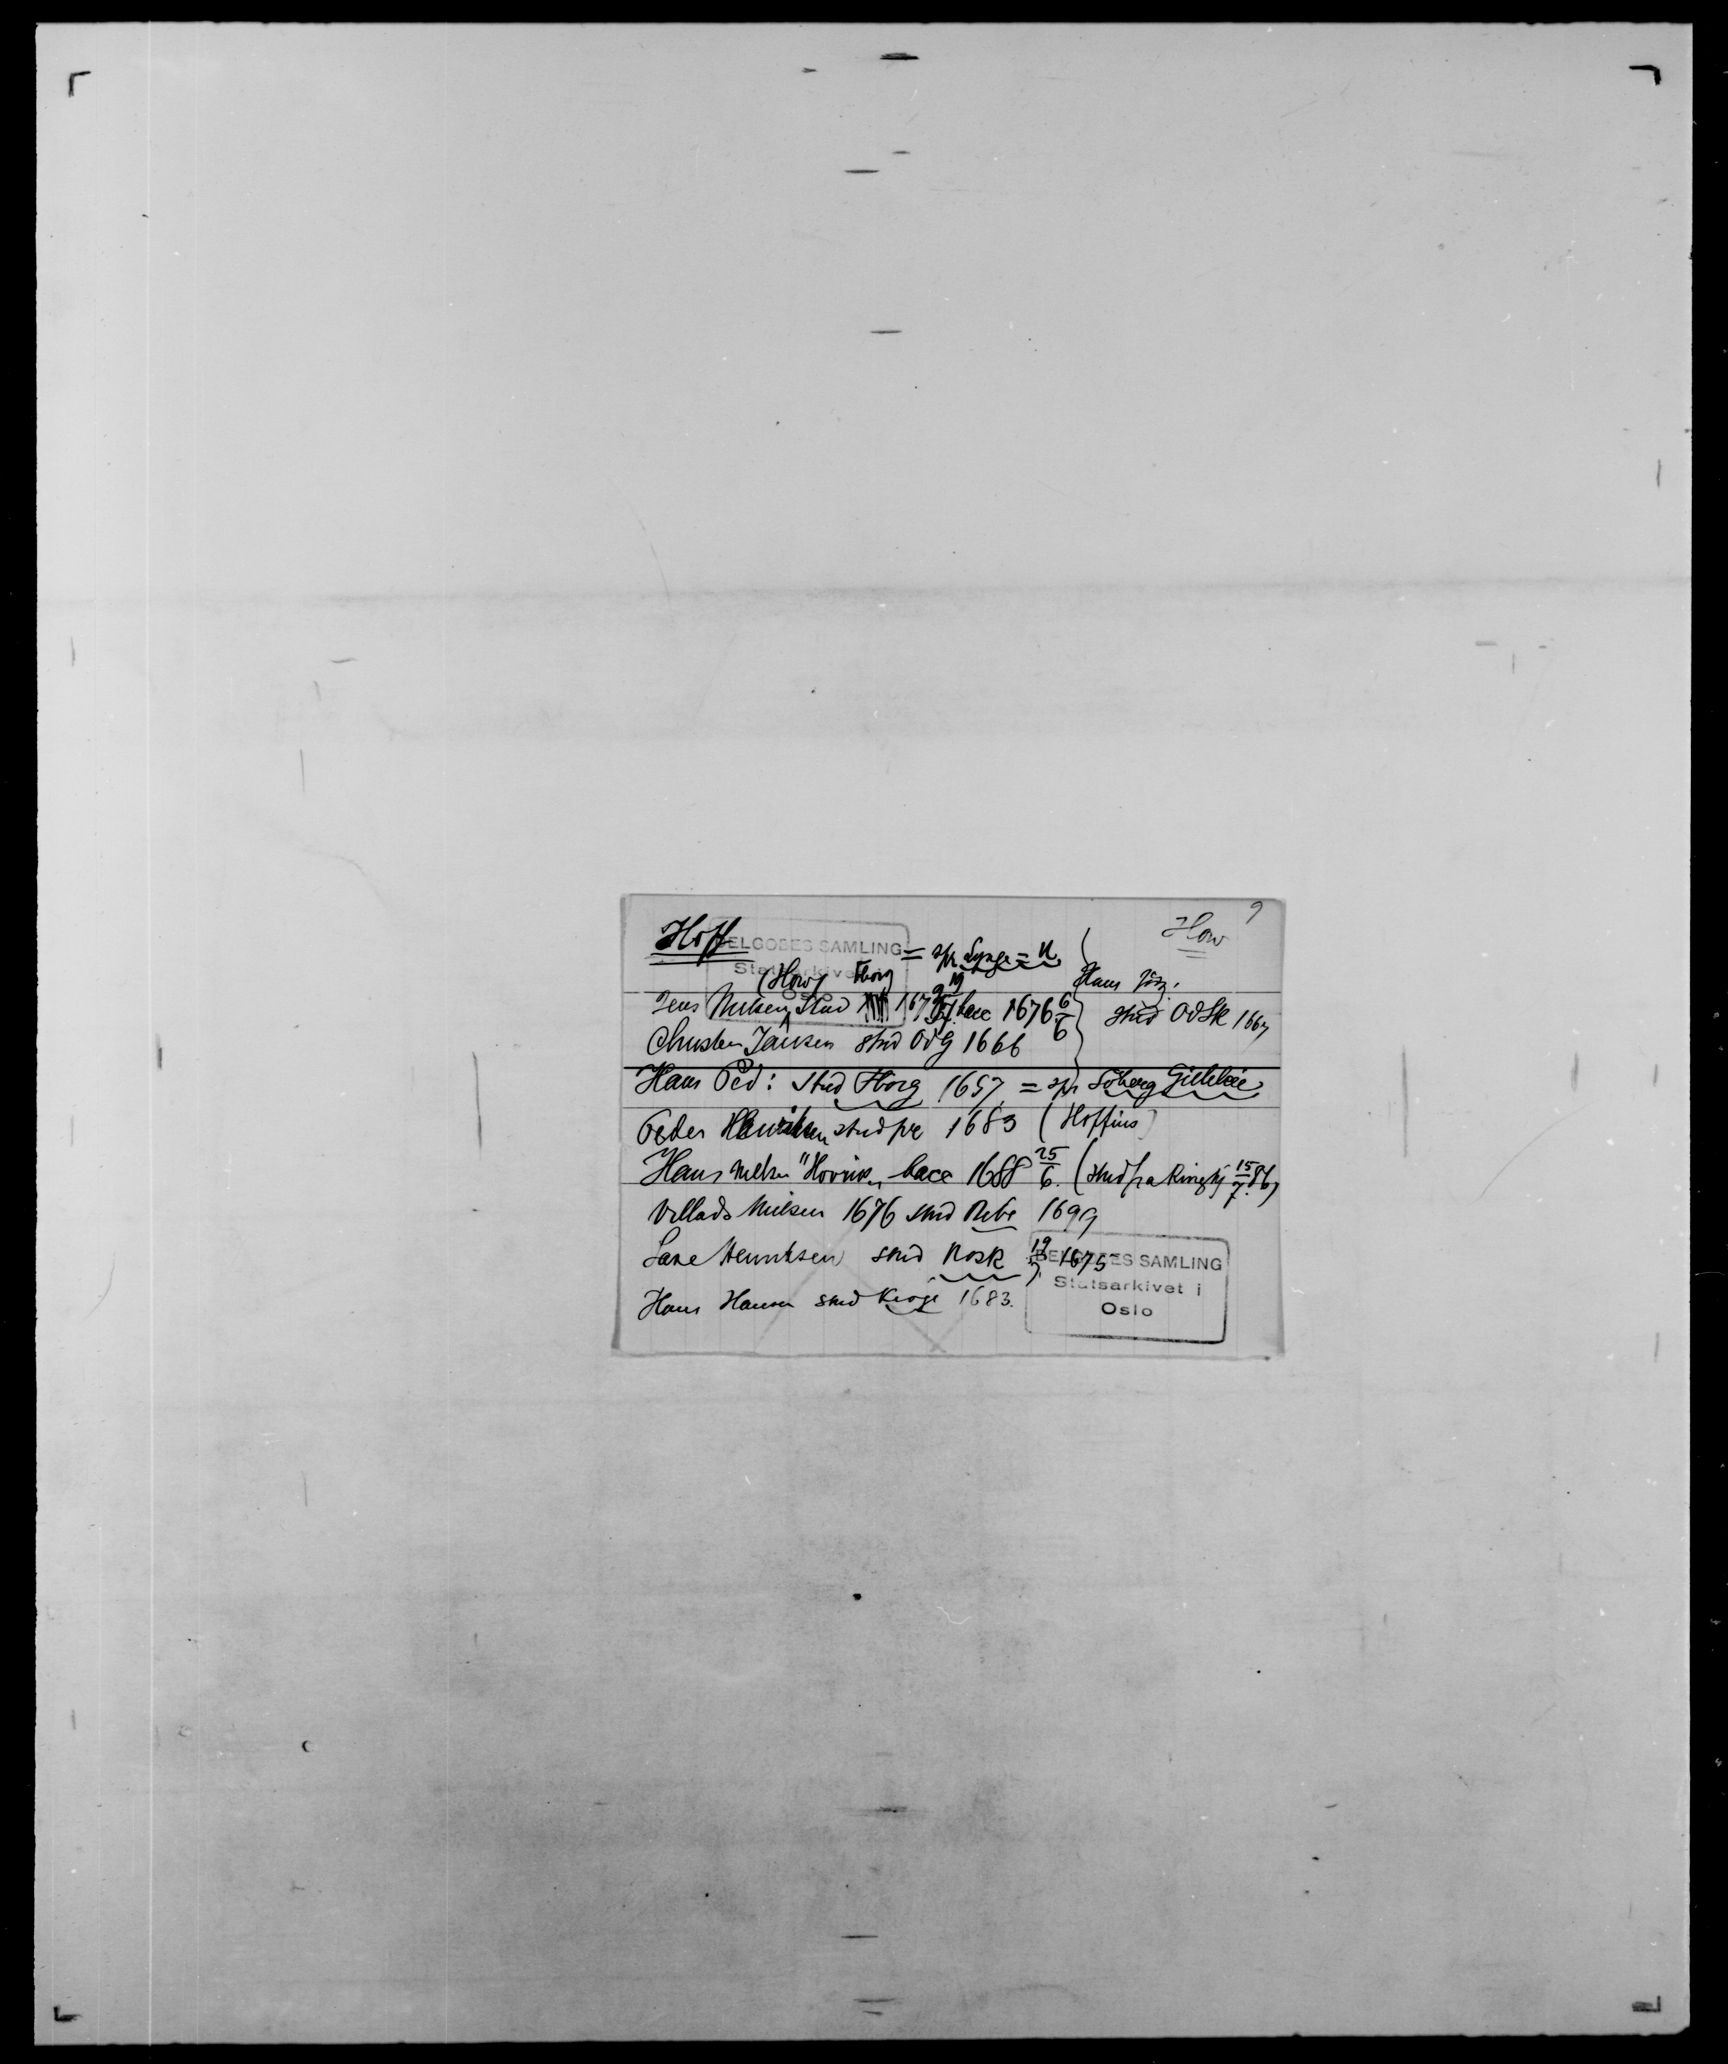 Hoff
How
9
DELGOBES SAMLING
Statsarkivet i
Oslo
= spr Lynge = N
(How) Fborg
Hans Jörg:
Jens Nielsen stud 167 bacc 1676 6/6
stud OdSk 1667
Christen Jansen stud OdG 1666
Hans Ped: stud Fborg 1657 = spr Söborg Gilleleie
Peder Henriksen stud fre 1683 (Hoffius)
Hans Nielsen "Hovius" bacc 1688 25/6. (stud fra Ringkj 15/7.86)
Villads Nielsen 1676 stud Ribe 1699
Lave Henriksen stud Rosk 19/7. 1675
Hans Hansen stud Kiøge 1683.
DELGOBES SAMLING
Statsarkivet i
Oslo